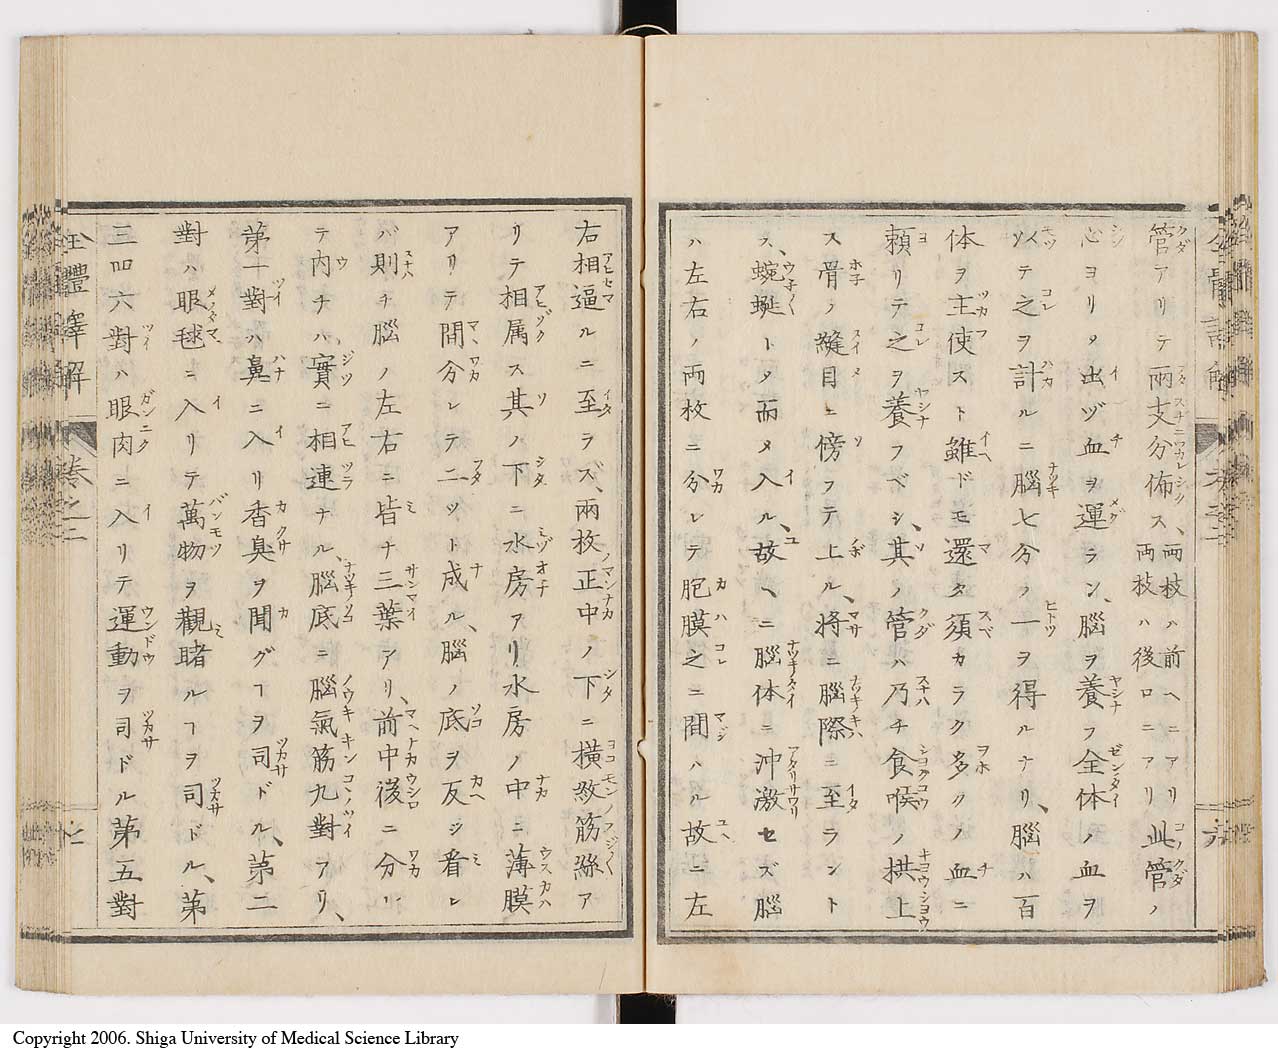 管アリテ兩支分佈ス、両枝ハ前ヘニアリ両枝ハ後ロニアリ此管ノ
心ヨリ出ヅ血ヲ運ラン、腦ヲ養フ全体ノ血ヲ
以テ之ヲ計ルニ腦七分ノ一ヲ得ルナリ、腦ハ百
体ヲ主使スト雖ドモ還タ須カラク多クノ血ニ
頼リテ之ヲ養フベシ、其ノ管ハ乃チ食喉ノ拱上
ス骨ノ縫目ニ傍フテ上ル、将ニ腦際ニ至ラント
ス、蜿蜒トメ而メ入ル、故ヘニ腦体ニ沖激セズ腦
ハ左右ノ両枚ニ分レテ胞膜之ニ間ハル故ニ左
右相逼ルニ至ラズ、兩枚正中ノ下ニ橫紋筋絲ア
リテ相属ス其ノ下ニ水房アリ水房ノ中ニ薄膜
アリテ間分レテ二ツト成ル、腦ノ底ヲ反シ看レ
バ則チ腦ノ左右ニ皆ナ三葉アリ、前中後ニ分ツ
テ内チハ實ニ相連ナル、腦底ニ腦氣筋九對アリ、
第一對ハ鼻ニ入リ香臭ヲ聞グヿヲ司ドル、第二
對ハ眼毬ニ入リテ萬物ヲ觀睹ルヿヲ司ドル、第
三四六對ハ眼肉ニ入リテ運動ヲ司ドル第五對
全體譯解 卷之二
Copyright 2006. Shiga University of Medical Science Library